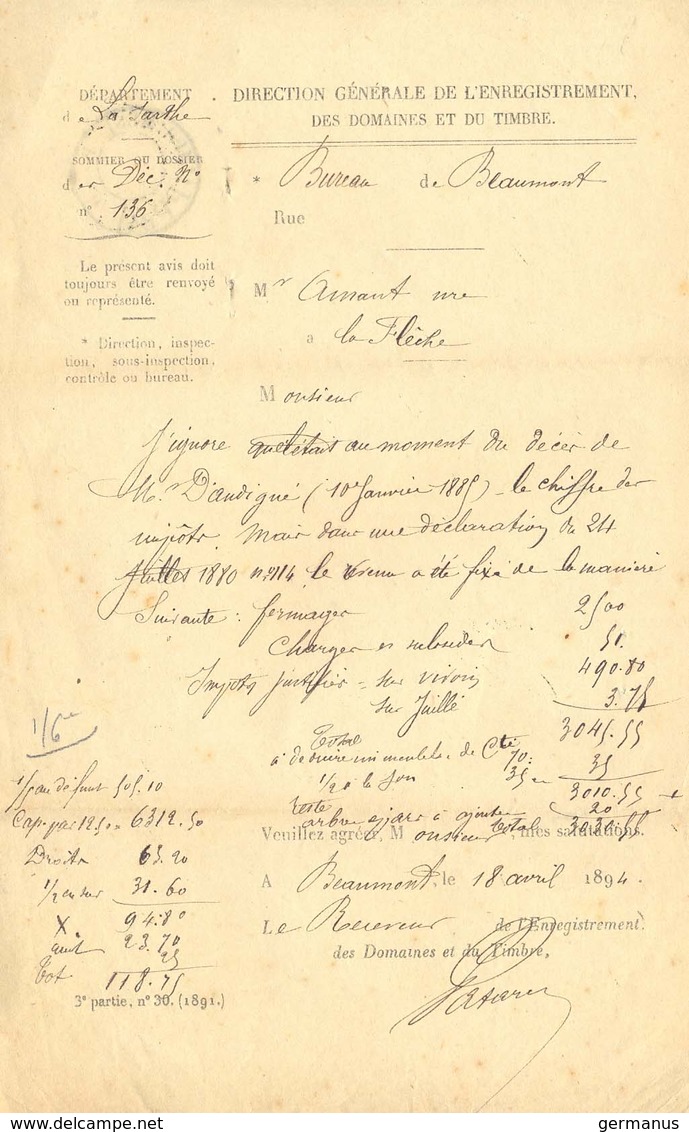 DÉPARTEMENT
de La Sarthe
SOMMIER OU DOSSIER
des Déc. No
n° 136
Le présent avis doit
toujours être renvoyé
ou représenté.
* Direction, inspec-
tion, sous-inspection,
contrôle ou bureau.
DIRECTION GÉNÉRALE DE L'ENREGISTREMENT,
DES DOMAINES ET DU TIMBRE.
* Bureau de Beaumont
Rue
Mr Amant nre
a la Flèche
Monsieur
J'ignore quel était au moment du décès de
Mr D'andigné (10 Janvier 1885) le chiffre des
impôts mais dans une déclaration du 24
Juillet 1880 n° 114 le revenu a été fixé de la manière
Suivante : fermages 2500
Charges et subsides 51.
Impôts justifiés - sur vivoin 490.80
sur Juillé 3.75
Total 3045.55
à déduire immeubles de Cté 70:
1/2 35 35
reste 3010.55 +
arbres épars à ajouter 20
total 3030.55
Veuillez agréer, Monsieur, mes salutations.
A Beaumont, le 18 avril 1894.
Le Receveur de l'Enregistrement
des Domaines et du Timbre,
1/6e
1/6 au défunt 505.10
Cap. par 12.50 = 6312.50
Droits 63.20
1/2 en sur 31.60
X 94.80
23.70
25
Tot 118.75
3e partie, n° 30. (1891.)
germanus